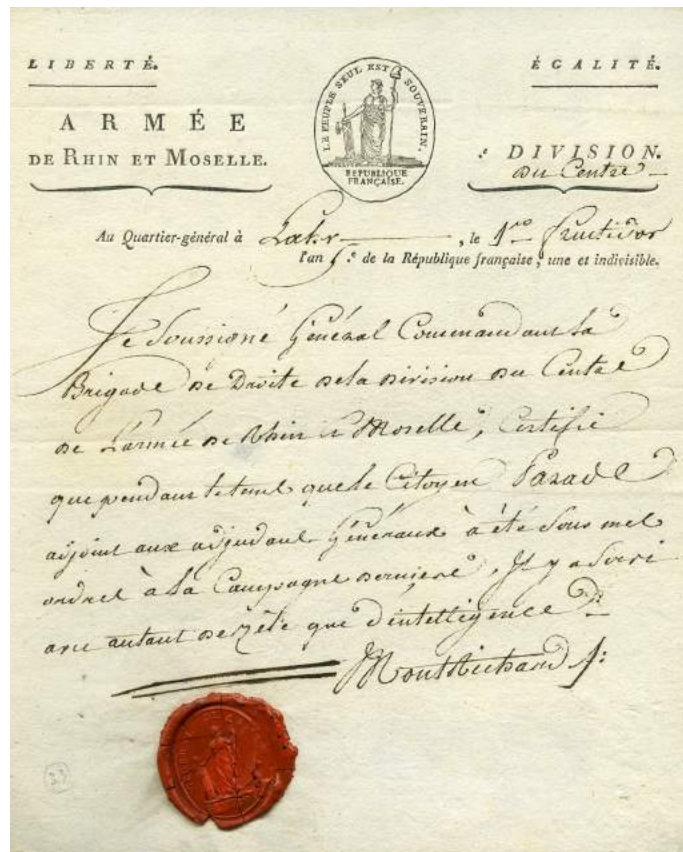 LIBERTÉ.
ÉGALITÉ.
LE PEUPLE SEUL EST SOUVERAIN.
REPUBLIQUE
FRANÇAISE.
ARMÉE
DE RHIN ET MOSELLE.
.e DIVISION.
du Centre
Au Quartier-général à Lahr, le 1er fructidor
l'an 5.e de la République française, une et indivisible.
Je Soussigné Général Commandant la
Brigade de Droite de la division du Centre
de L'armée de Rhin et Moselle, Certifie
que pendant le tems que le Citoyen Parade
adjoint aux adjudants Généraux à été Sous mes
ordres à la Campagne derniere, Il y a Servi
avec autant de zèle que d'intelligence
MontRichard
23